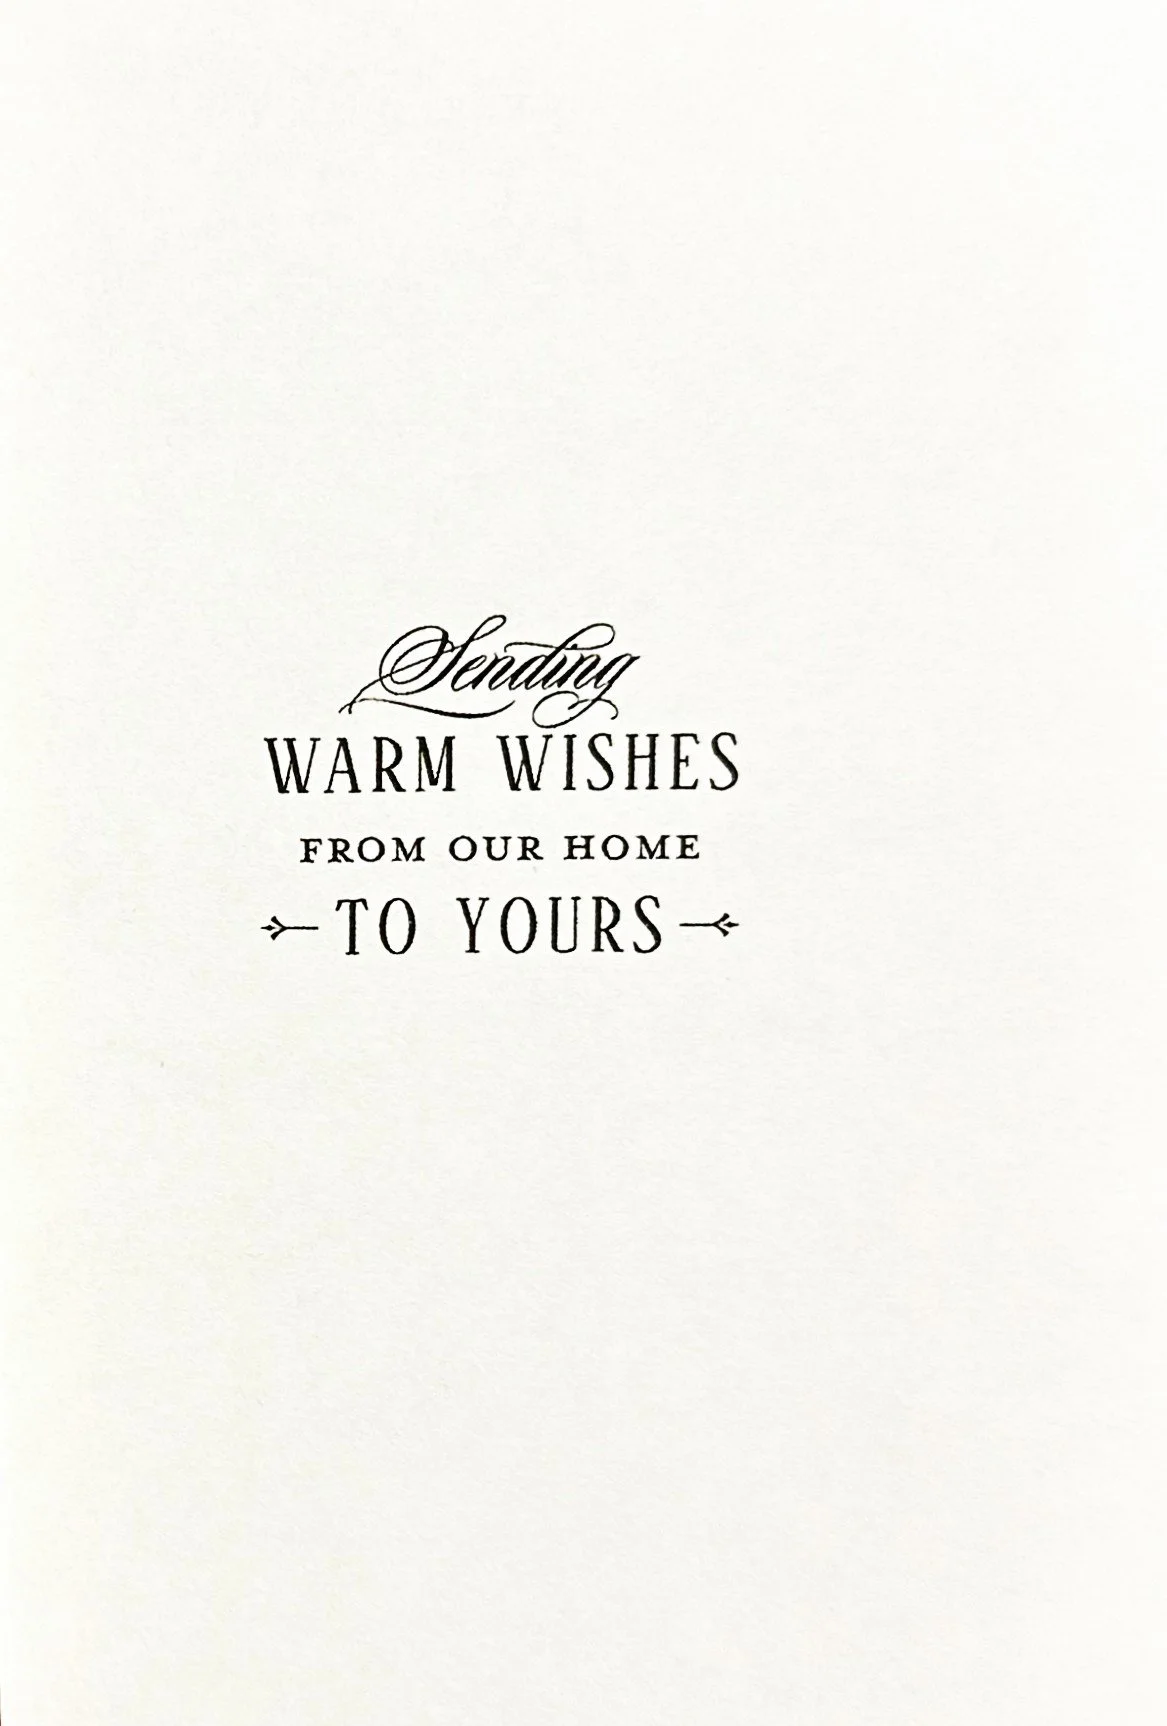 Sending
WARM WISHES
FROM OUR HOME
TO YOURS